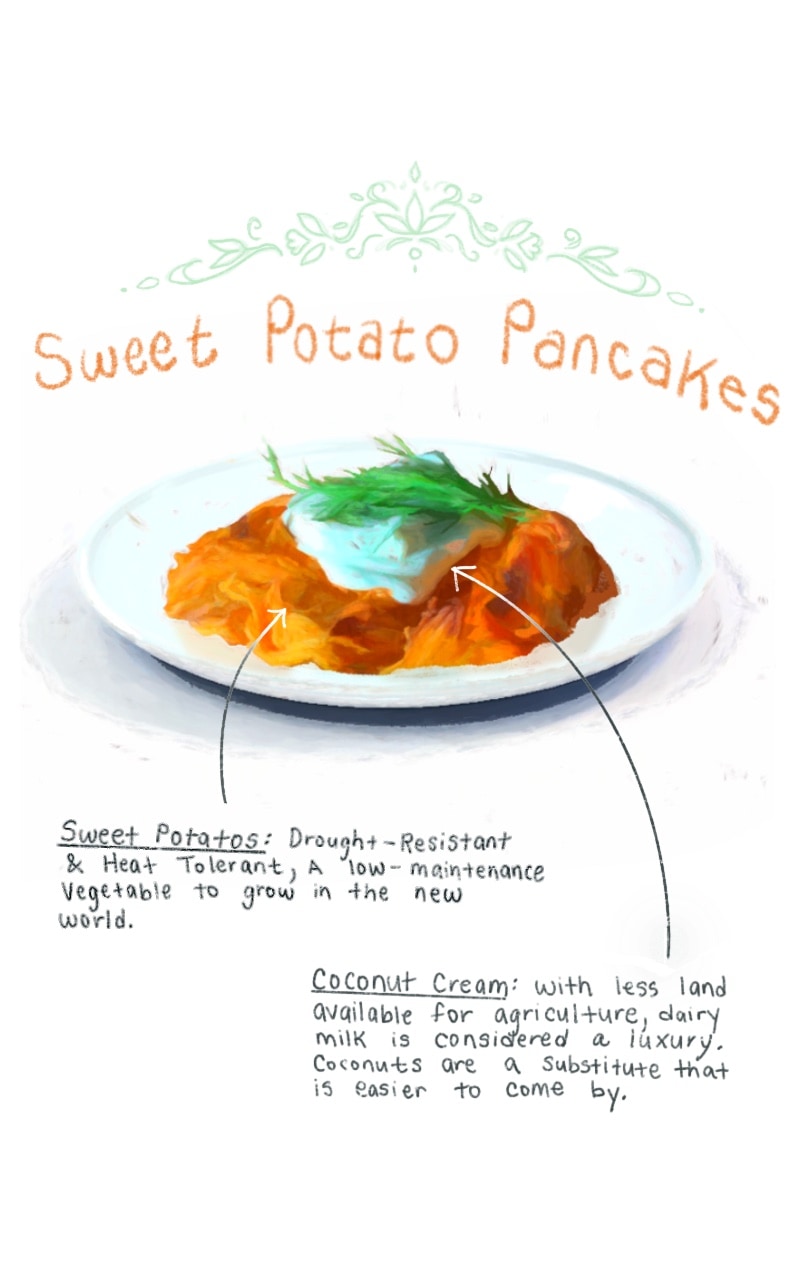 Sweet Potato Pancakes
Sweet Potatos: Drought-Resistant
& Heat Tolerant, A low-maintenance
Vegetable to grow in the new
world.
Coconut Cream: with less land
available for agriculture, dairy
milk is considered a luxury.
Coconuts are a substitute that
is easier to come by.